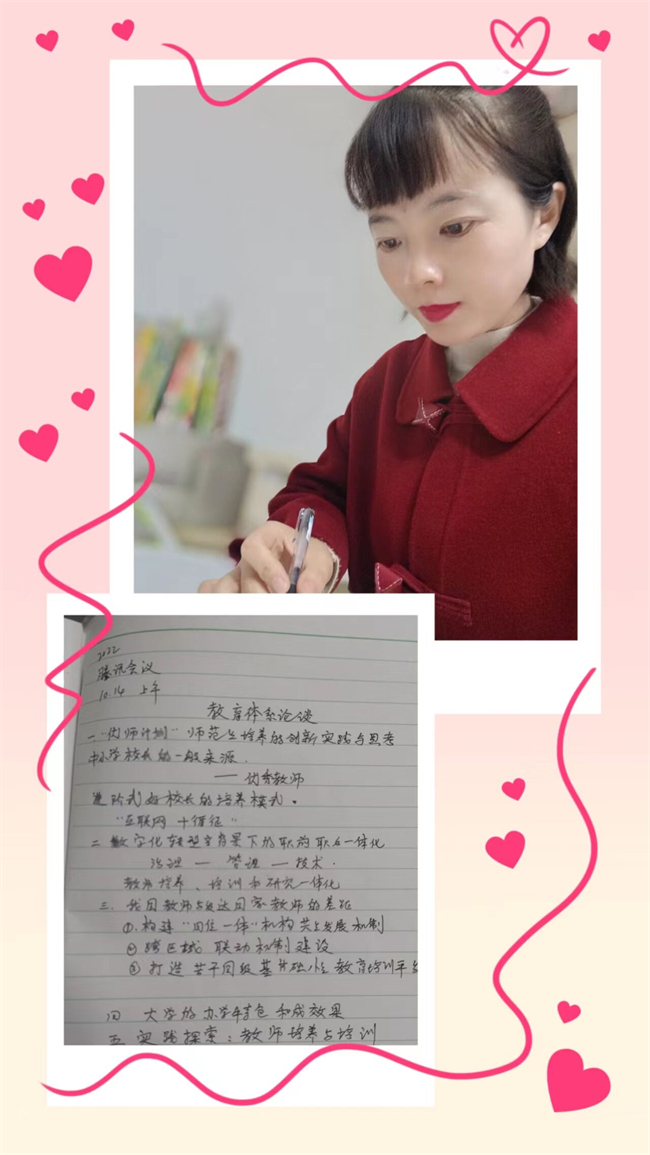 2022
腾讯会议
10.14 上午
教育体系论谈
一"优师计划"师范生培养的创新实践与思考
中小学校长的一般来源
—— 优秀教师
进阶式好校长的培养模式。
"互联网 十征征"
二 数字化转型背景下的职前职后一体化
治理 — 管理 — 技术.
教师培养、培训和研究一体化
三. 我国教师与发达国家教师的差距
①.构建"四位一体"机构共生发展机制
②跨区域 联动机制建设
③打造若干国级基础性教育培训平台
四 大学的办学特色和成效果
五 实践探索:教师培养与培训